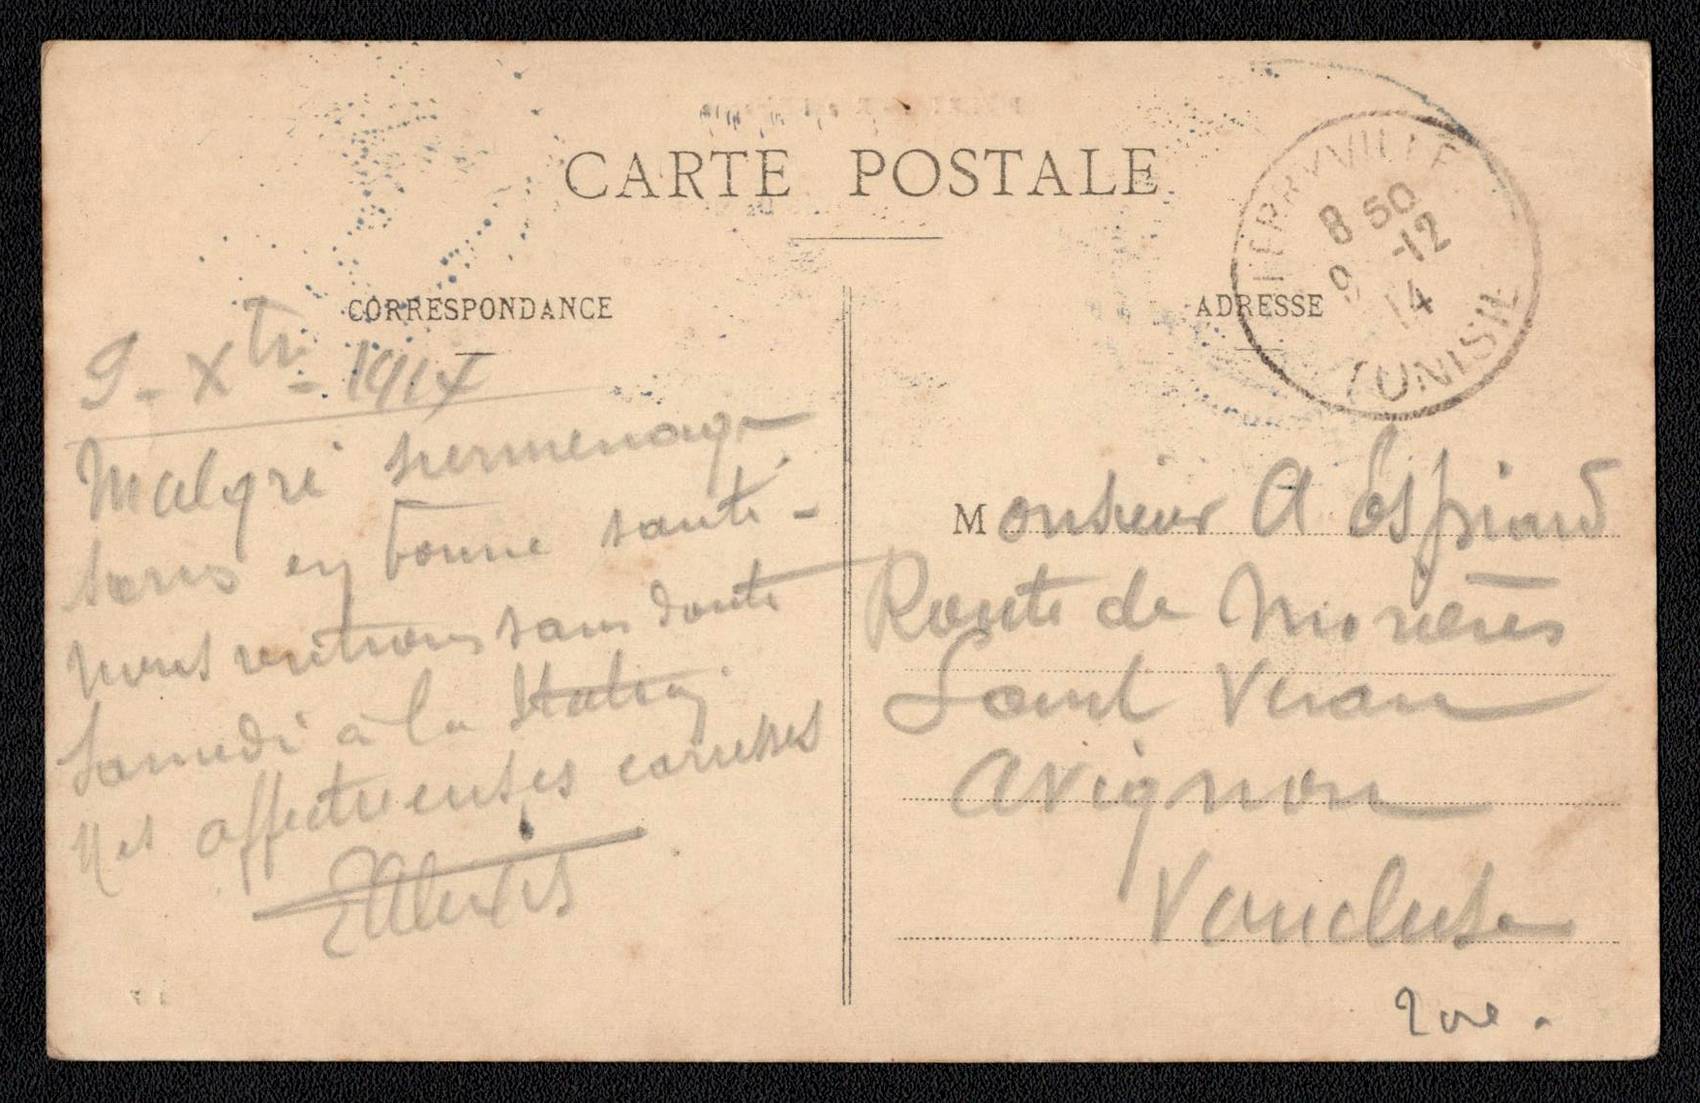 CARTE POSTALE
FERRYVILLE
8 50
9 -12
14
TUNISIE
CORRESPONDANCE
9 - Xbre - 1914
Malgré surmenage
suis en bonne santé -
nous rentrons sans doute
Samedi à la
Mes affectueuses caresses
EAlexis
ADRESSE
Monsieur A Espiard
Route de Morières
Saint Veran
Avignon
Vaucluse